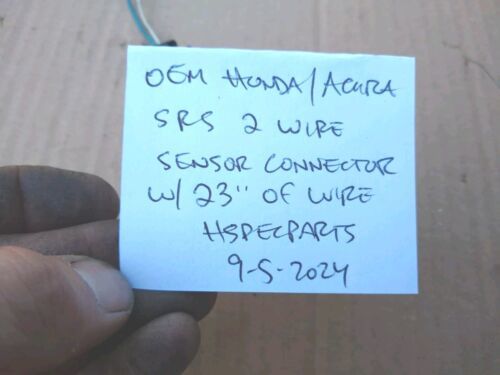 OEM HONDA/ACURA
SRS 2 WIRE
SENSOR CONNECTOR
W/ 23" OF WIRE
HSPECPARTS
9-5-2024